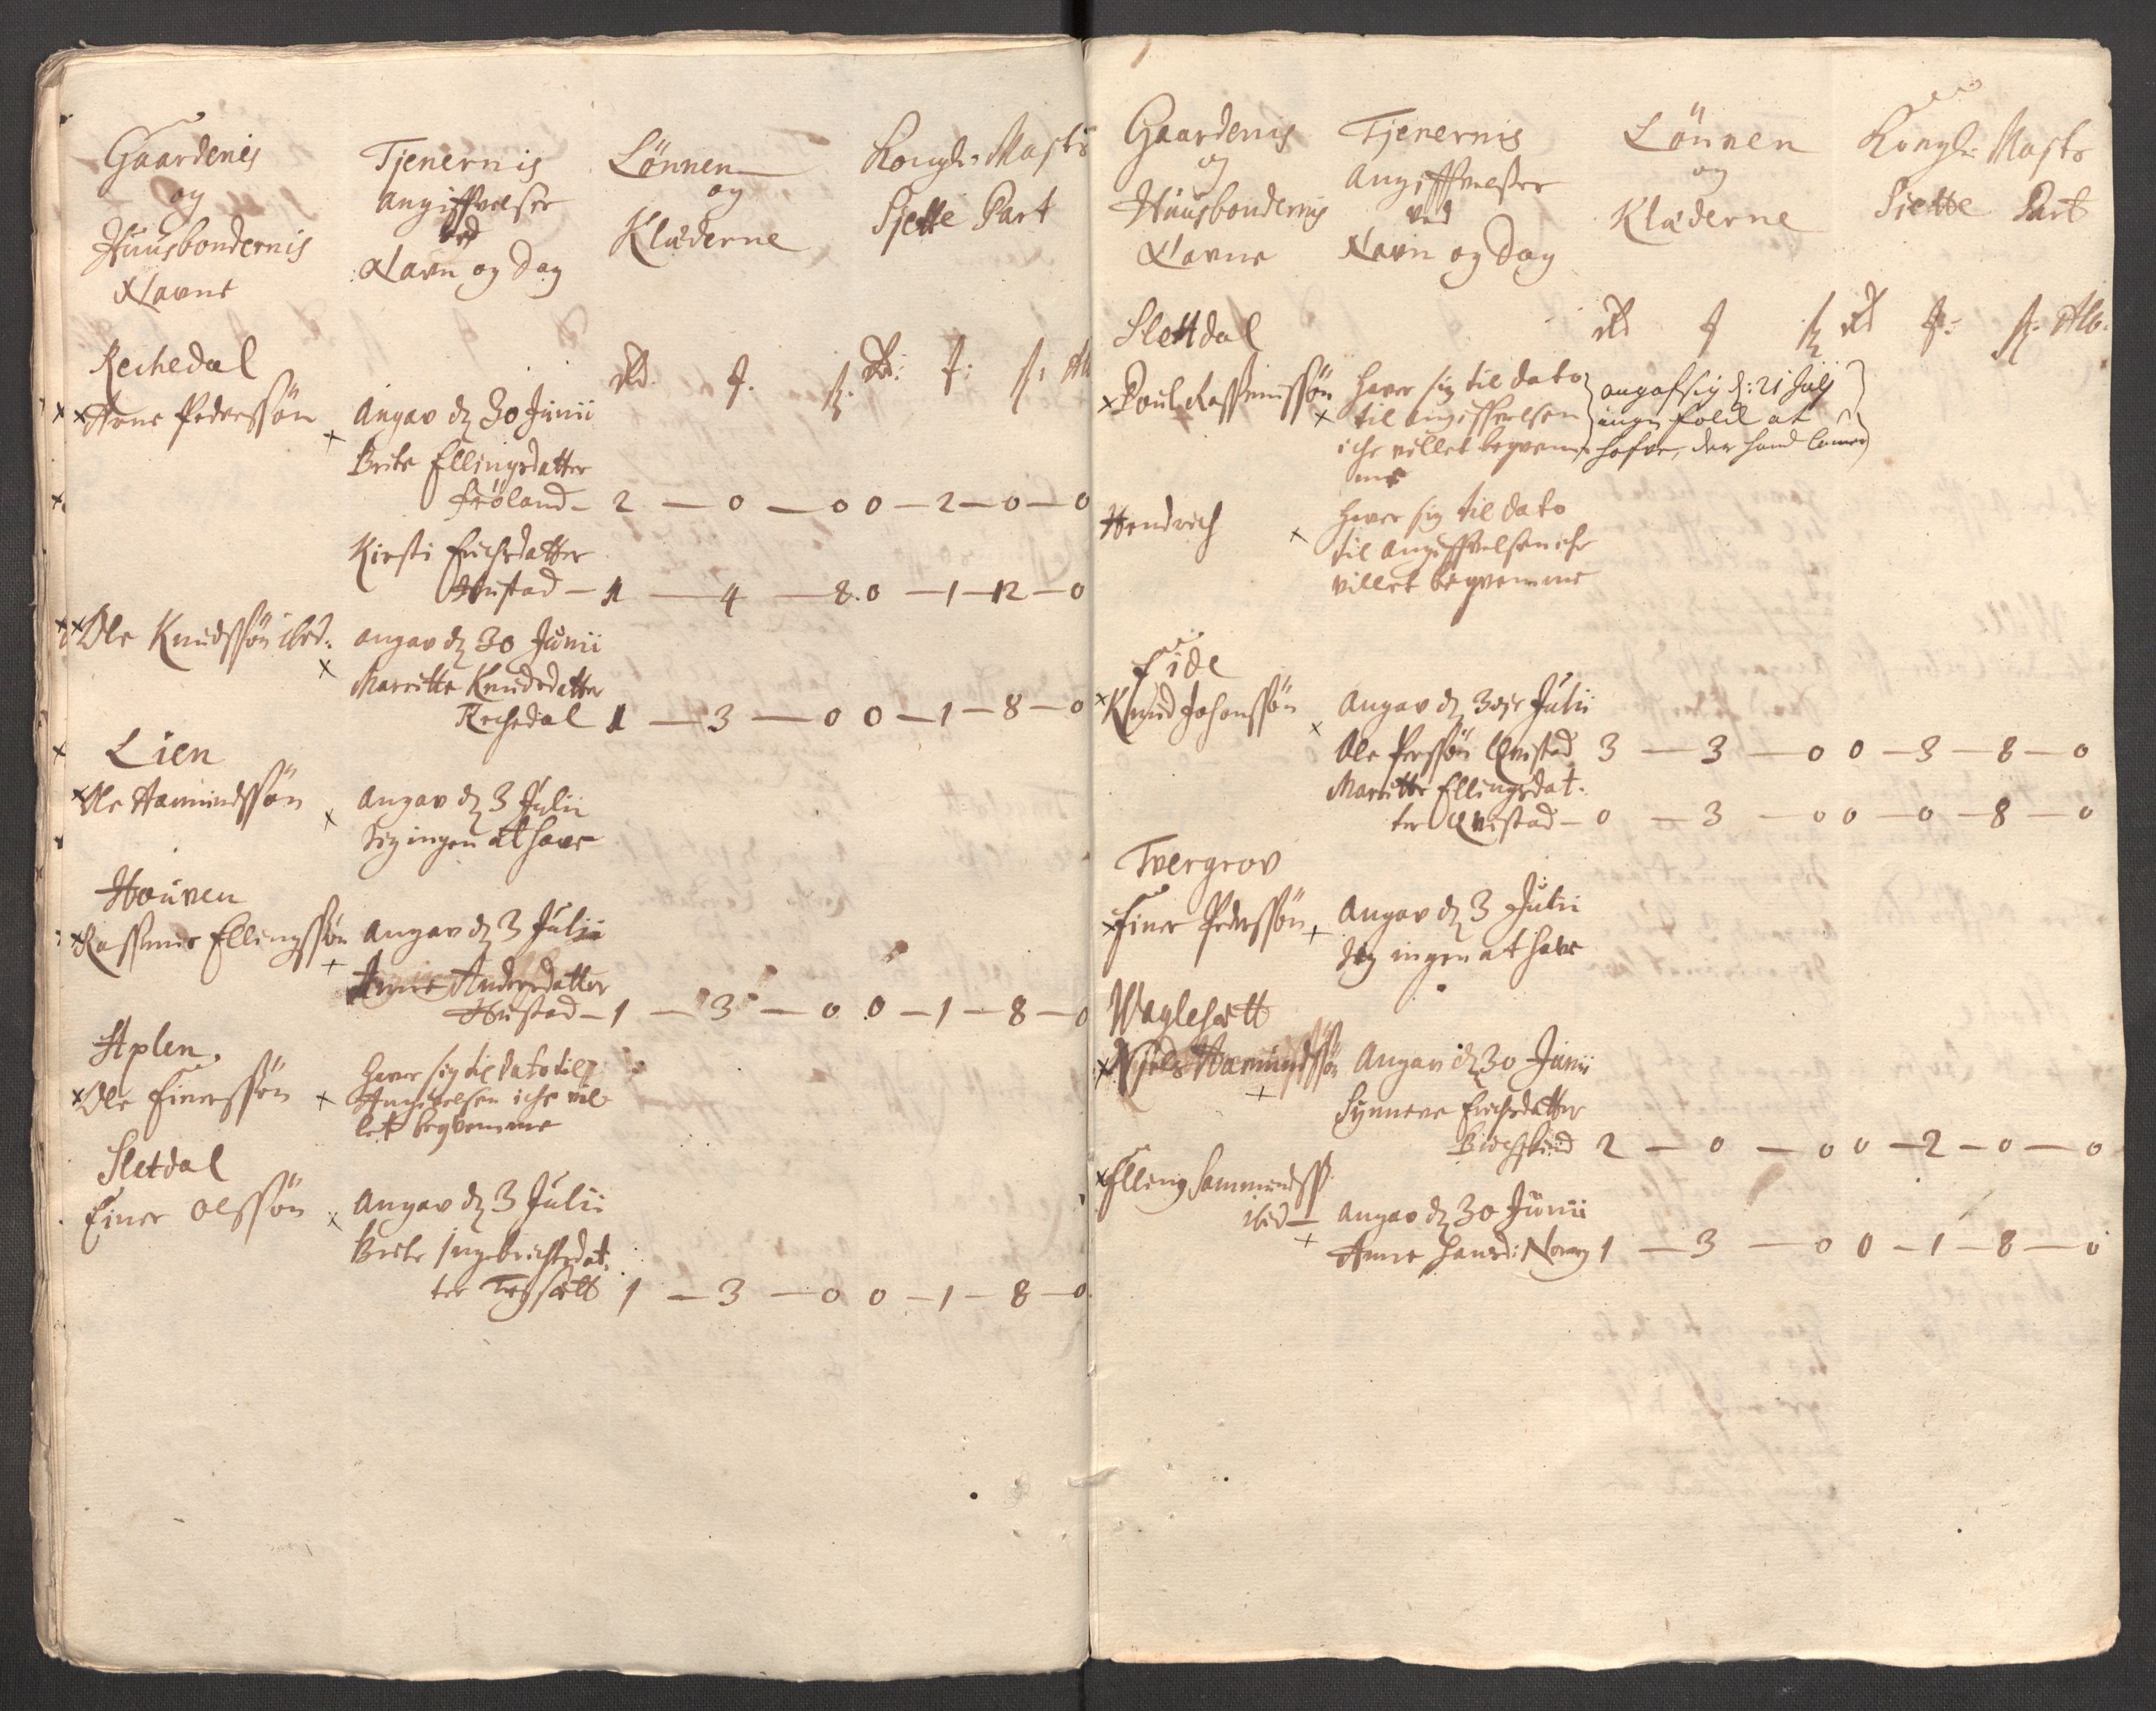 Gaardenis
og
Huusbondernis
Navne
Tjenernis
Angiffvelser
ved
Navn og Dag
Lönnen
og
Klæderne
Kongl: Mayts
Sjette Part
Rd. ß: Rd:
Rechedal
Arne Pederssön
Angav d 30 Junii
Brite Ellingsdatter
Fröland – 2 – 0 – 0 0 – 2 – 0 – 0
Kirsti Erichsdatter
Hustad – 1 – 4 – 8. 0 – 1 – 12 – 0
Ole Knudssön ibid:
angav d 30 Junii
Marritte Knudsdatter
Rechedal 1 – 3 – 0 0 – 1 – 8 – 0
Lien
Ole Aamundssön
Angav d 3 Julii
sig ingen at have
Houven
Rassmus Ellingssön
Angav d 3 Julii
Anne Andersdatter
Hustad – 1 – 3 – 0 0 – 1 – 8 – 0
Aplen.
Ole Einerssön
Haver sig til dato til
Angivelsen iche vil
let beqvemme
Sletdal
Einer Olssön
Angav d 3 Julii
Brite Ingebrichtsdat
ter Tegsætt 1 – 3 – 0 0 – 1 – 8 – 0
Gaardenis
og
Huusbondernis
Navne
Tjenernis
Angiffvelser
ved
Navn og Dag
Lönnen
og
Klæderne
Kongl: Mayts
Siette Part
Rd ß Rd ß: Alb:
Slettdal
Poul Rassmussön
Haver sig til dato
til angiffvelsen
iche villet beqvem
me
angaf sig d: 21 Julj
ingen folck at
hafve, der hand lönner
Hendrich
Haver sig til dato
til Angiffvelsen iche
villet beqvemme
Eide
Knud Johanssön
Angav d 3die Julii
Ole Perssön Qvistad 3 – 3 – 0 0 – 3 – 8 – 0
Marritte Ellingsdat-
ter Qvistad – 0 – 3 – 0 0 – 0 – 8 – 0
Tvergrov
Einer Pederssön
Angav d 3 Julii
sig ingen at have
Waglesætt
Niels Aamundssön
Angav d 30 Junii
Synneve Erichsdatter
2 – 0 – 0 0 – 2 – 0 – 0
Elling
ibid –
Angav d 30 Junii
Anne Hansd: 1 – 3 – 0 0 – 1 – 8 – 0